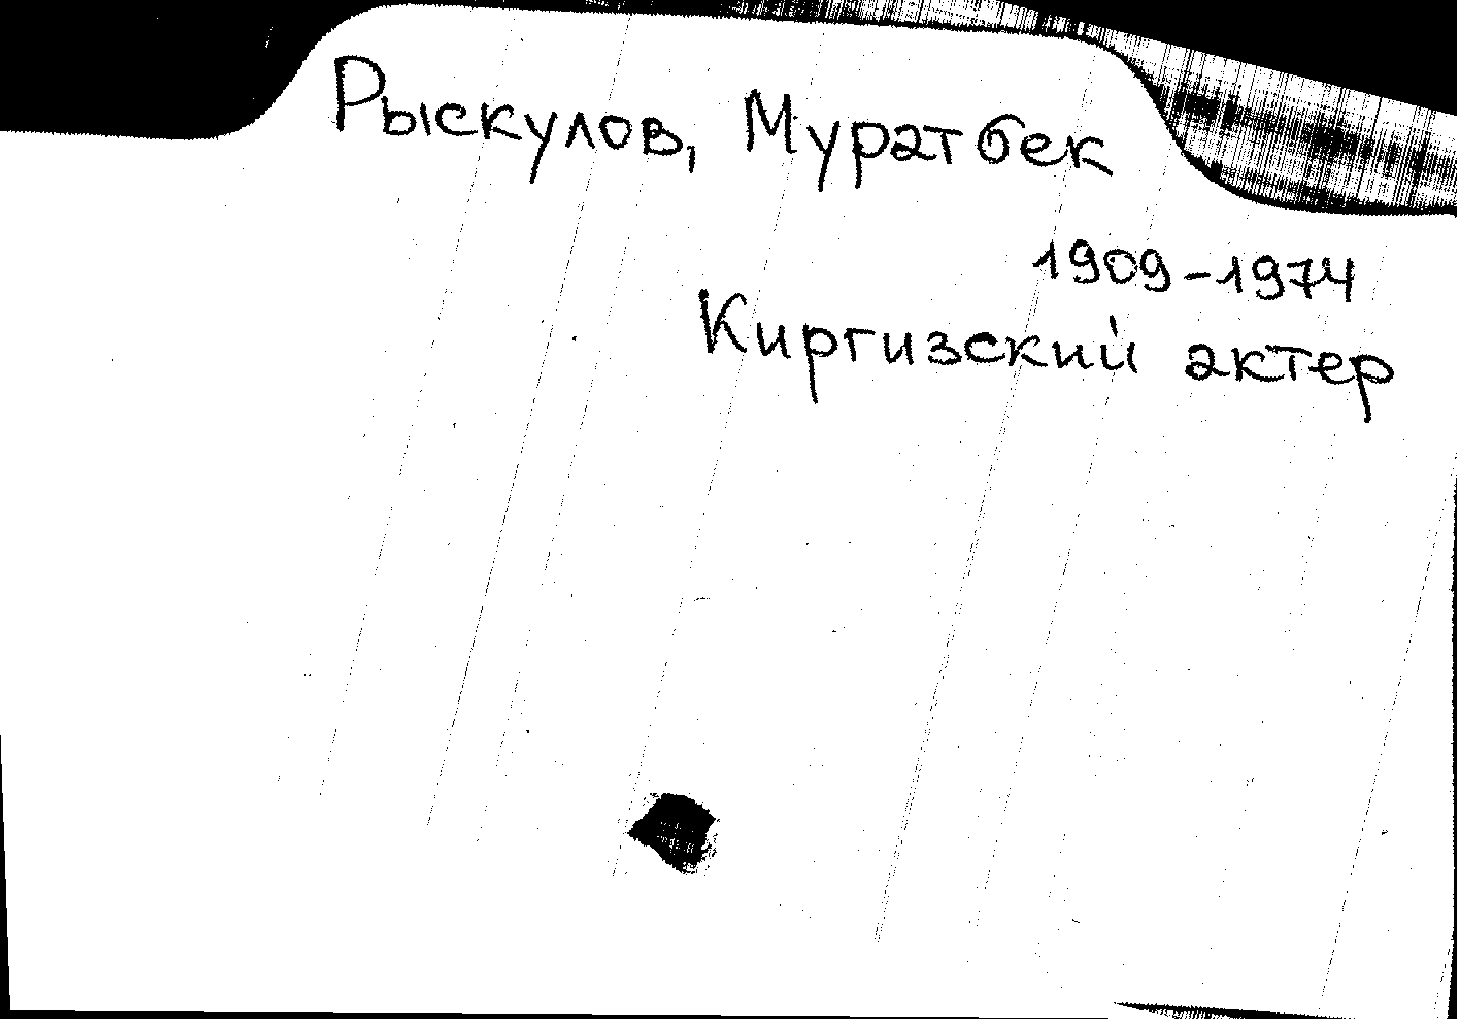 Рыскулов, Муратбек
1909-1974
Киргизский актер